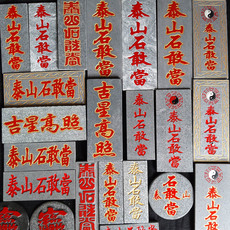 泰山石敢當
泰山石敢當
泰山石敢當
泰山石敢當
泰山石敢當
泰山石敢當
泰山石敢當
泰山石敢當
吉星高照
吉星高照
泰山石敢當
泰山石敢當
泰山石敢當
泰山石敢當
泰山石敢當
泰山石敢當
石敢當
泰山
泰山石敢當